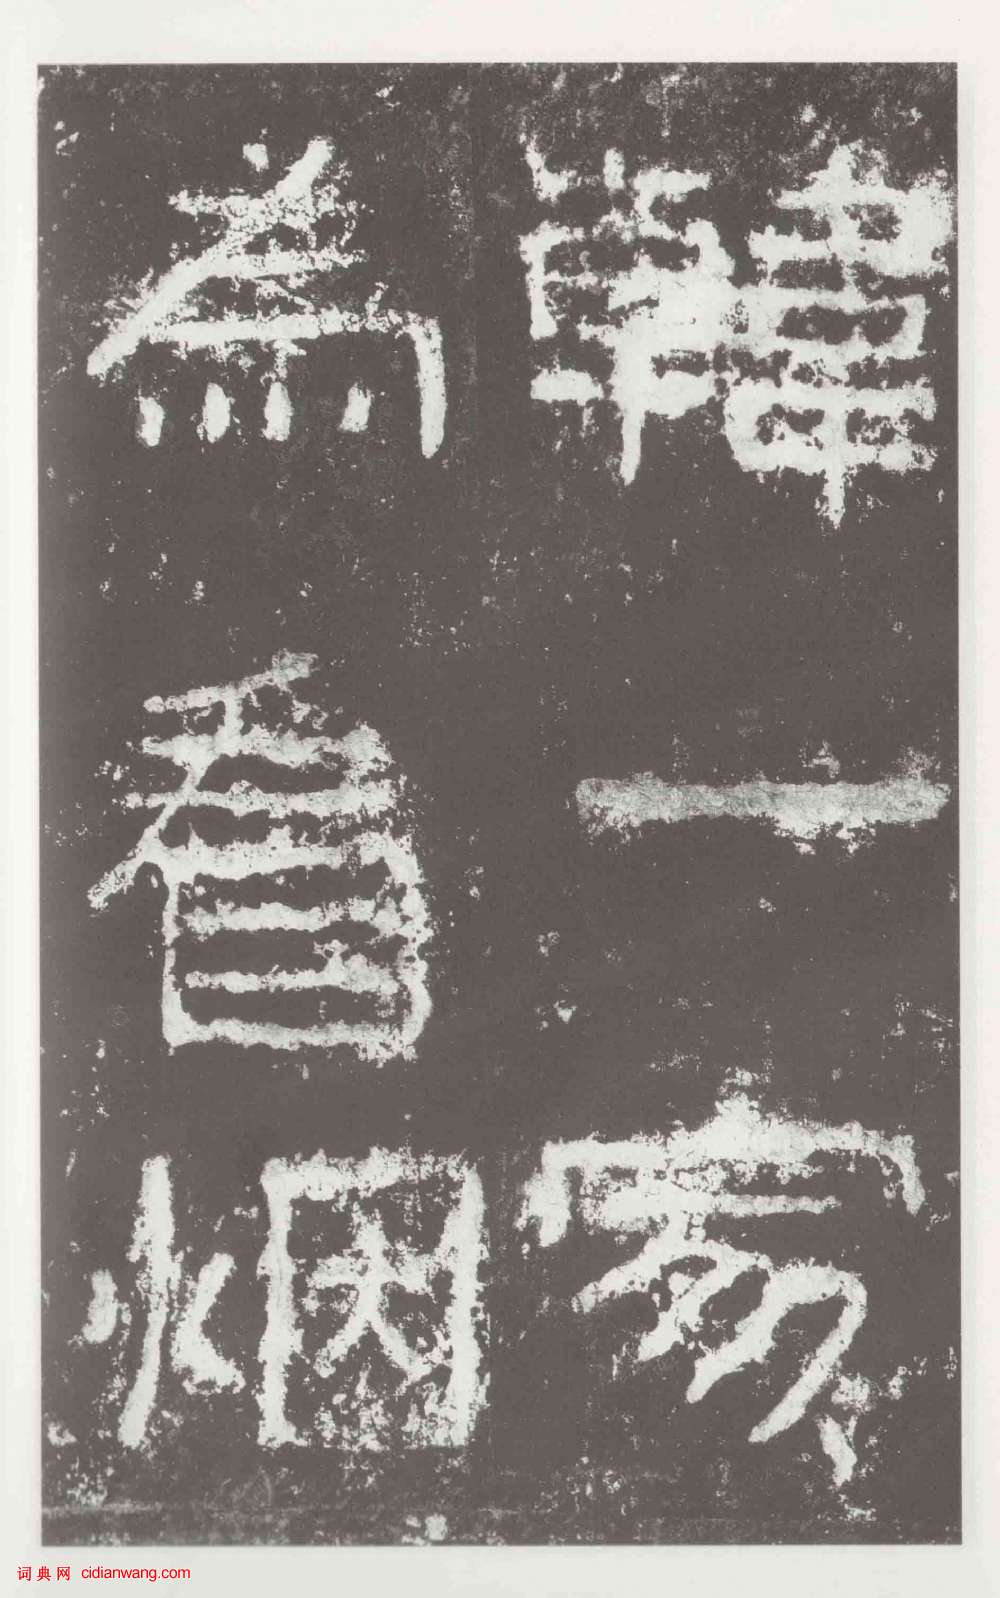 韓一家
為看烟
词典网 cidianwang.com